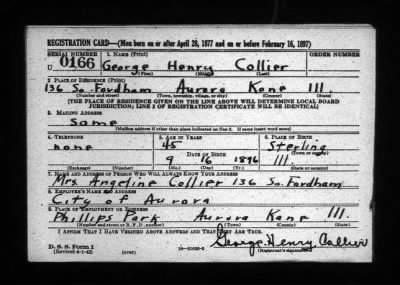 REGISTRATION CARD—(Men born on or after April 28, 1877 and on or before February 16, 1897)
SERIAL NUMBER 1. NAME (Print) ORDER NUMBER
U 0166 George Henry Collier
(First) (Middle) (Last)
2. PLACE OF RESIDENCE (Print)
136 So. Fordham Aurora Kane Ill
(Number and street) (Town, township, village, or city) (County) (State)
[THE PLACE OF RESIDENCE GIVEN ON THE LINE ABOVE WILL DETERMINE LOCAL BOARD
JURISDICTION; LINE 2 OF REGISTRATION CERTIFICATE WILL BE IDENTICAL]
3. MAILING ADDRESS
Same
[Mailing address if other than place indicated on line 2. If same insert word same]
4. TELEPHONE 5. AGE IN YEARS 6. PLACE OF BIRTH
none 45 Sterling
DATE OF BIRTH (Town or county)
9 16 1896 Ill.
(Exchange) (Number) (Mo.) (Day) (Yr.) (State or country)
7. NAME AND ADDRESS OF PERSON WHO WILL ALWAYS KNOW YOUR ADDRESS
Mrs. Angeline Collier 136 So. Fordham
8. EMPLOYER'S NAME AND ADDRESS
City of Aurora
9. PLACE OF EMPLOYMENT OR BUSINESS
Phillips Park Aurora Kane Ill.
(Number and street or R. F. D. number) (Town) (County) (State)
I AFFIRM THAT I HAVE VERIFIED ABOVE ANSWERS AND THAT THEY ARE TRUE.
D. S. S. Form 1 George Henry Collier
(Revised 4-1-42) (over) (Registrant's signature)